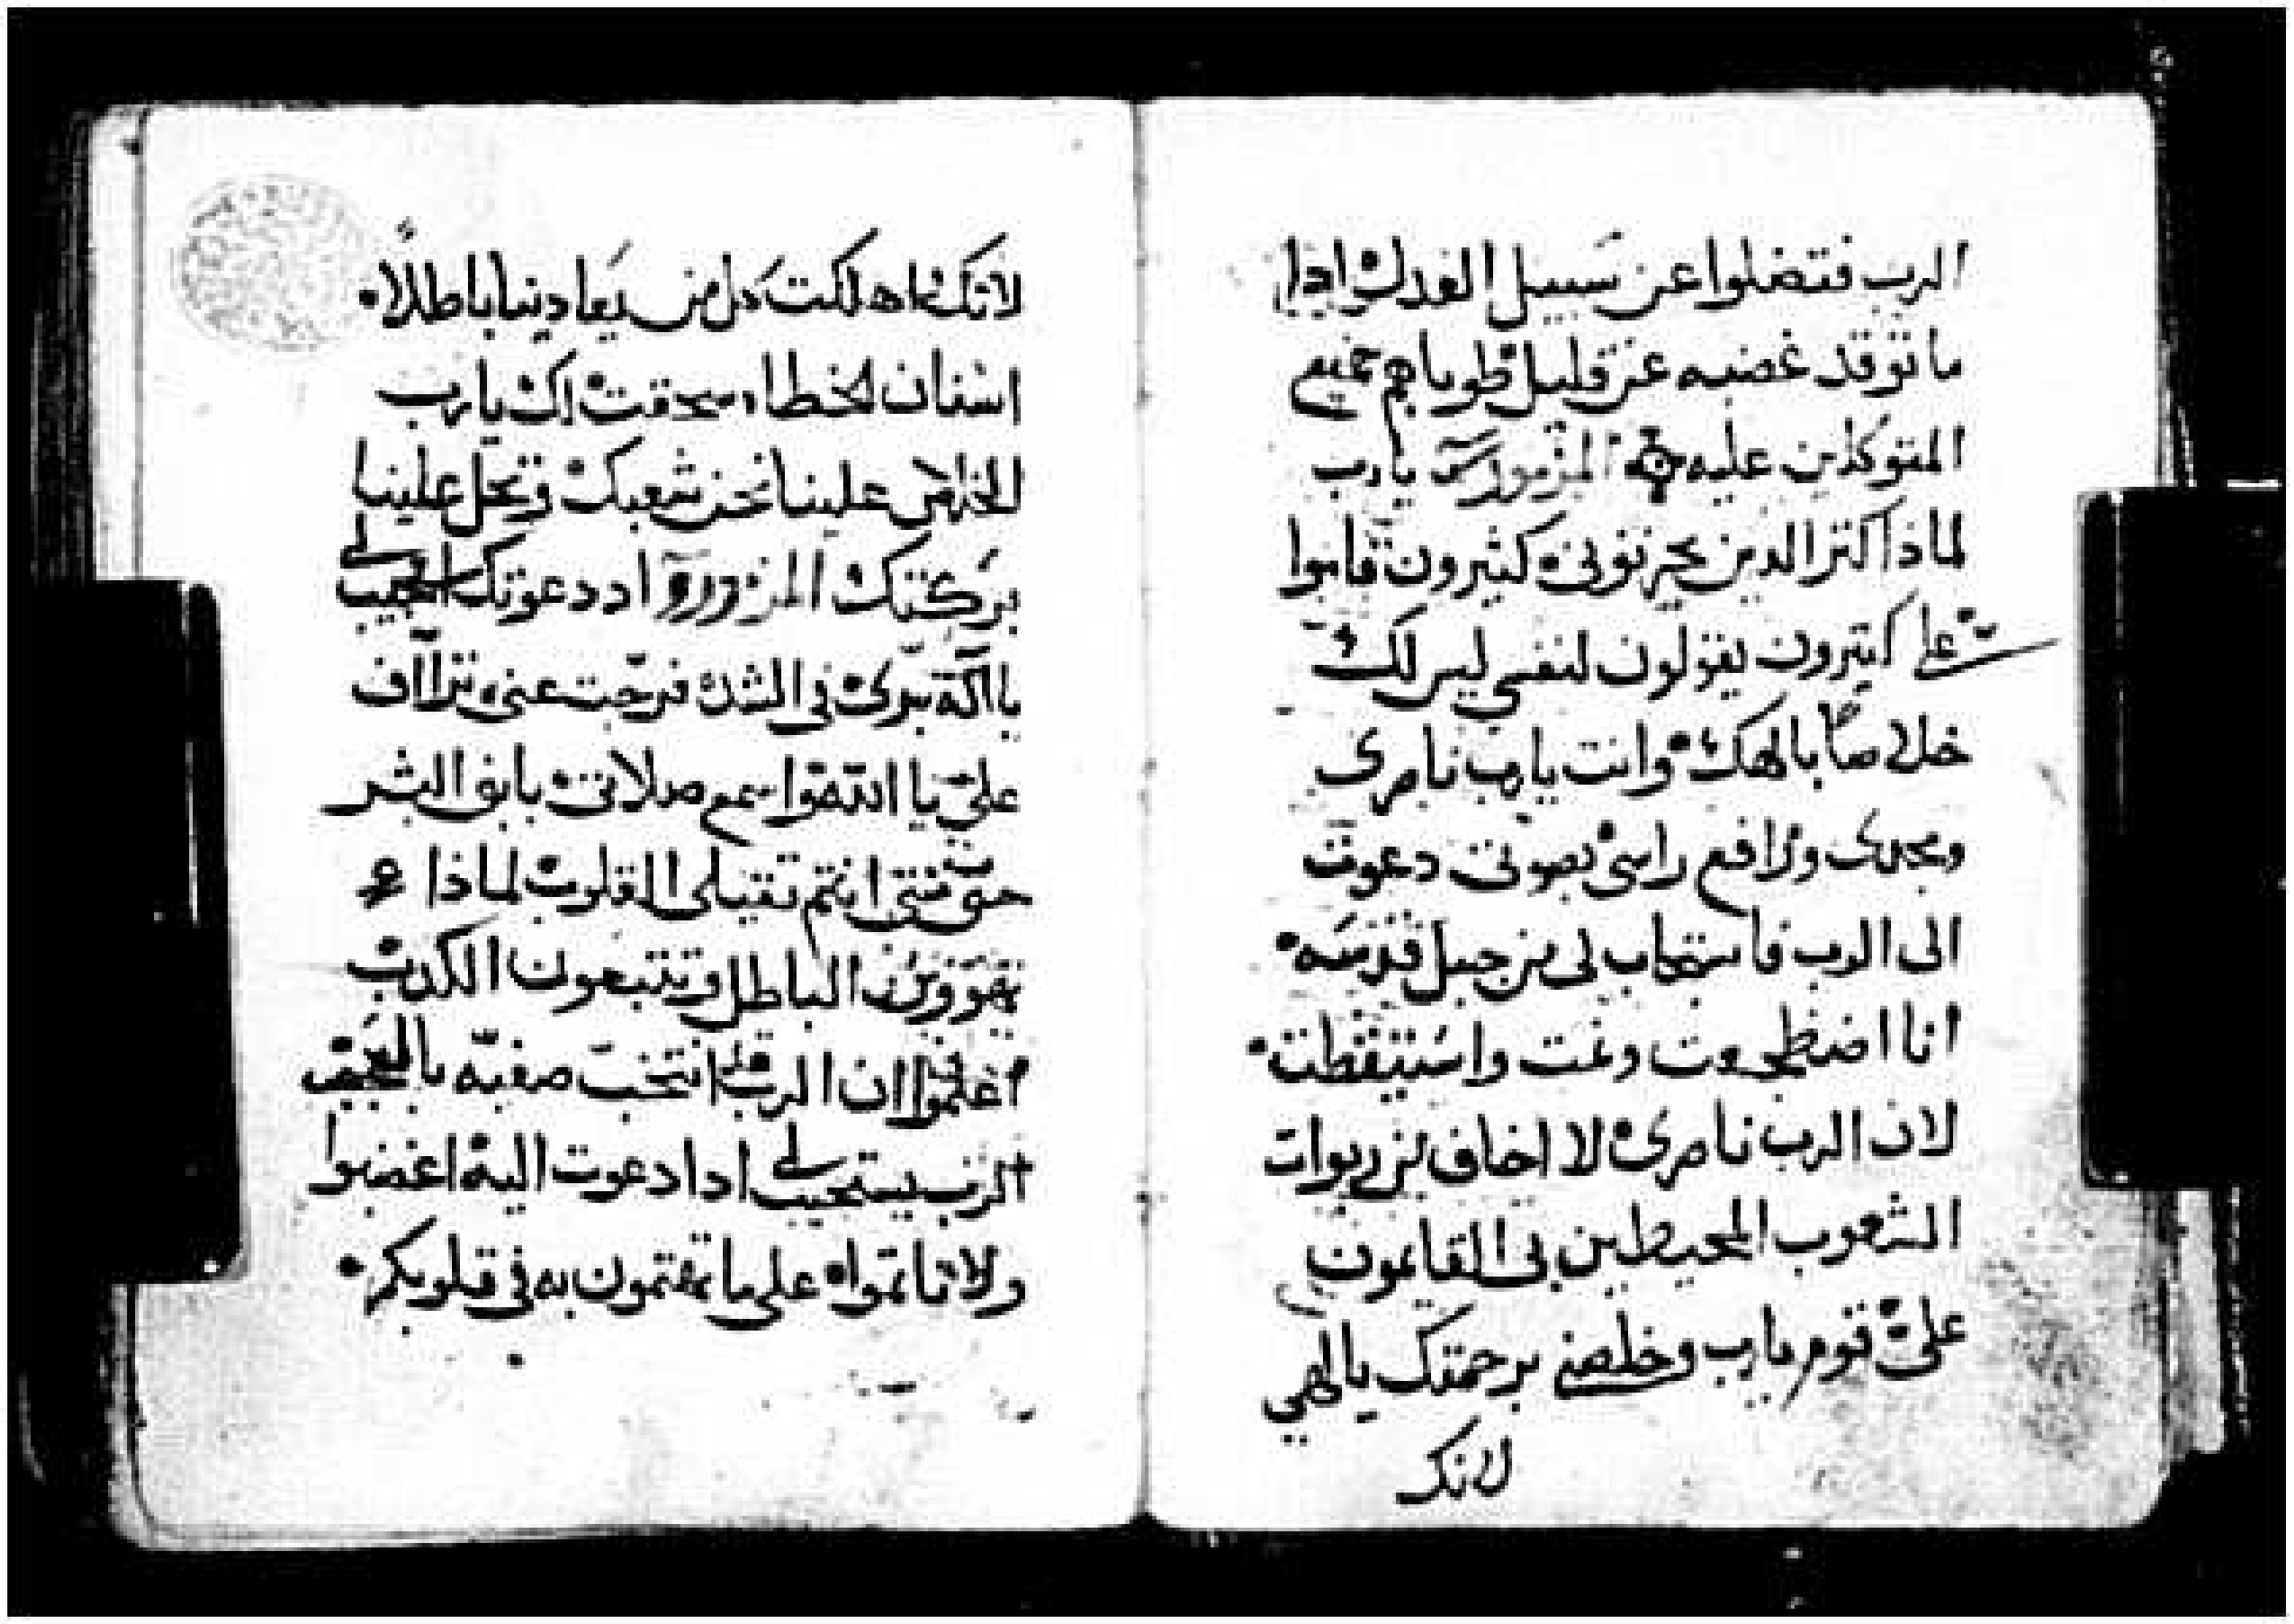 الرب فتضلوا عن سبيل العدل اذا
ما توقد غضبه عن قليل طوباهم جميع
المتوكلين عليه المزمور يارب
لماذا كتر الدين يحزنوني كثيرون قاموا
على كتيرون يقولون لنفسي ليس لك
خلاصًا بالهك وانت يارب ناصرى
ومجدى ورافع راسى بصوتى دعوت
الى الرب فاستجاب لى من جبل قدسه
انا اضطجعت ونمت واستيقظت
لان الرب ناصرى لا اخاف من ربوات
الشعوب المحيطين بى القايمون
علىّ قوم يارب وخلصنى برحمتك يا الهي
لانك
لانك اهلكت كل من يعادينا باطلاً
اسنان الخطاه سحقت لك يارب
الخلاص علينا نحن شعبك وتحل علينا
بركتك المزمور اد دعوتك استجيب لى
يا اله برى فى الشده فرجت عنى تراف
علىّ يا الله واسمع صلاتى يا بنى البشر
حتى متى انتم تقيلى القلوب لماذا
الباطل وتتبعون الكدب
اعلموا ان الرب قد انتخب صفيه بالعجب
الرب يستجيب لى ادا دعوت اليه اغضبوا
ولا تاتموا على ما تهتمون به فى قلوبكم